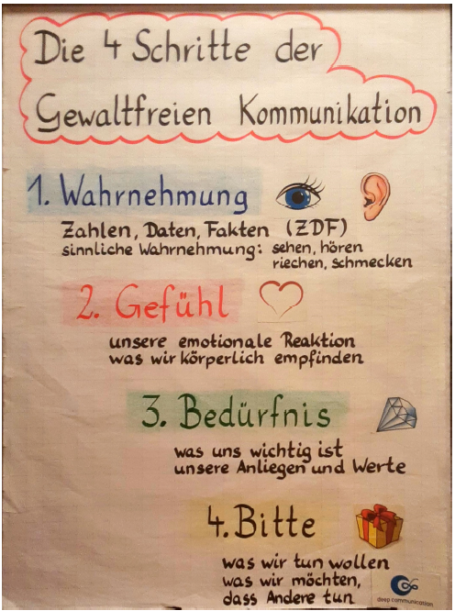 Die 4 Schritte der
Gewaltfreien Kommunikation
1. Wahrnehmung
Zahlen, Daten, Fakten (ZDF)
sinnliche Wahrnehmung: sehen, hören
riechen, schmecken
2. Gefühl
unsere emotionale Reaktion
was wir körperlich empfinden
3. Bedürfnis
was uns wichtig ist
unsere Anliegen und Werte
4. Bitte
was wir tun wollen
was wir möchten,
dass Andere tun
deep communication